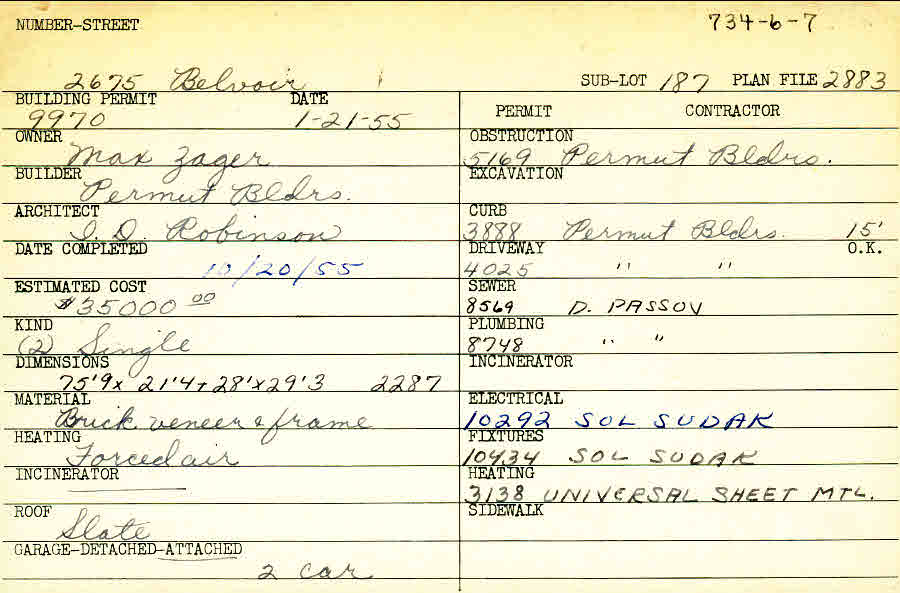 NUMBER-STREET 734-6-7
2675 Belvoir SUB-LOT 187 PLAN FILE 2883
BUILDING PERMIT DATE
9970 1-21-55
OWNER
Max Zager
BUILDER
Permut Bldrs.
ARCHITECT
I. D. Robinson
DATE COMPLETED
10/20/55
ESTIMATED COST
$35000 00
KIND
(2) Single
DIMENSIONS
75'9 x 21'4 + 28' x 29'3 2287
MATERIAL
Brick veneer & frame
HEATING
Forced air
INCINERATOR
ROOF
Slate
GARAGE-DETACHED-ATTACHED
2 car
PERMIT CONTRACTOR
OBSTRUCTION
5169 Permut Bldrs.
EXCAVATION
CURB
3888 Permut Bldrs. 15'
DRIVEWAY O.K.
4025 " "
SEWER
8569 D. PASSOV
PLUMBING
8748 " "
INCINERATOR
ELECTRICAL
10292 SOL SUDAK
FIXTURES
10434 SOL SUDAK
HEATING
3138 UNIVERSAL SHEET MTL.
SIDEWALK